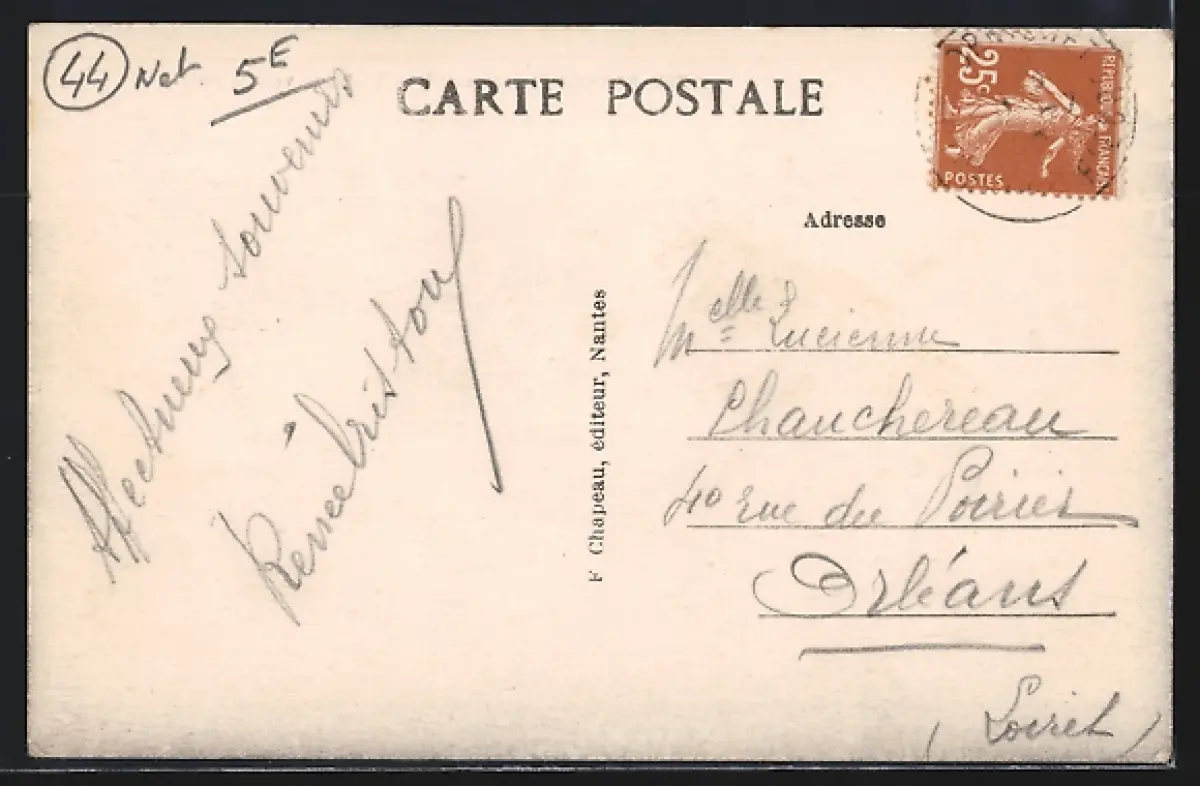 44 Net 5E
CARTE POSTALE
25c
POSTES
Adresse
Affectueux souvenirs
Renée
F Chapeau, éditeur, Nantes
Melle Lucienne
Chauchereau
40 rue du Poirier
Orléans
(Loiret)